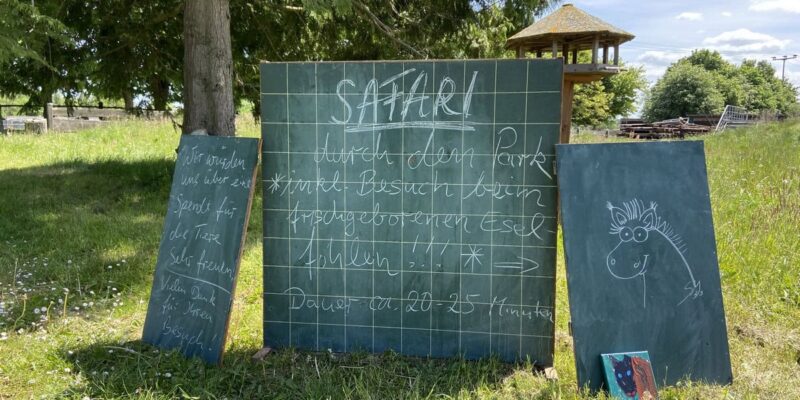 Wir würden
uns über eine
Spende für
die Tiere
sehr freuen!
Vielen Dank
für Ihren
Besuch
SAFARI
durch dem Park
*inkl. Besuch beim
frischgeborenen Esel
fohlen !!! * →
Dauer ca. 20-25 Minuten